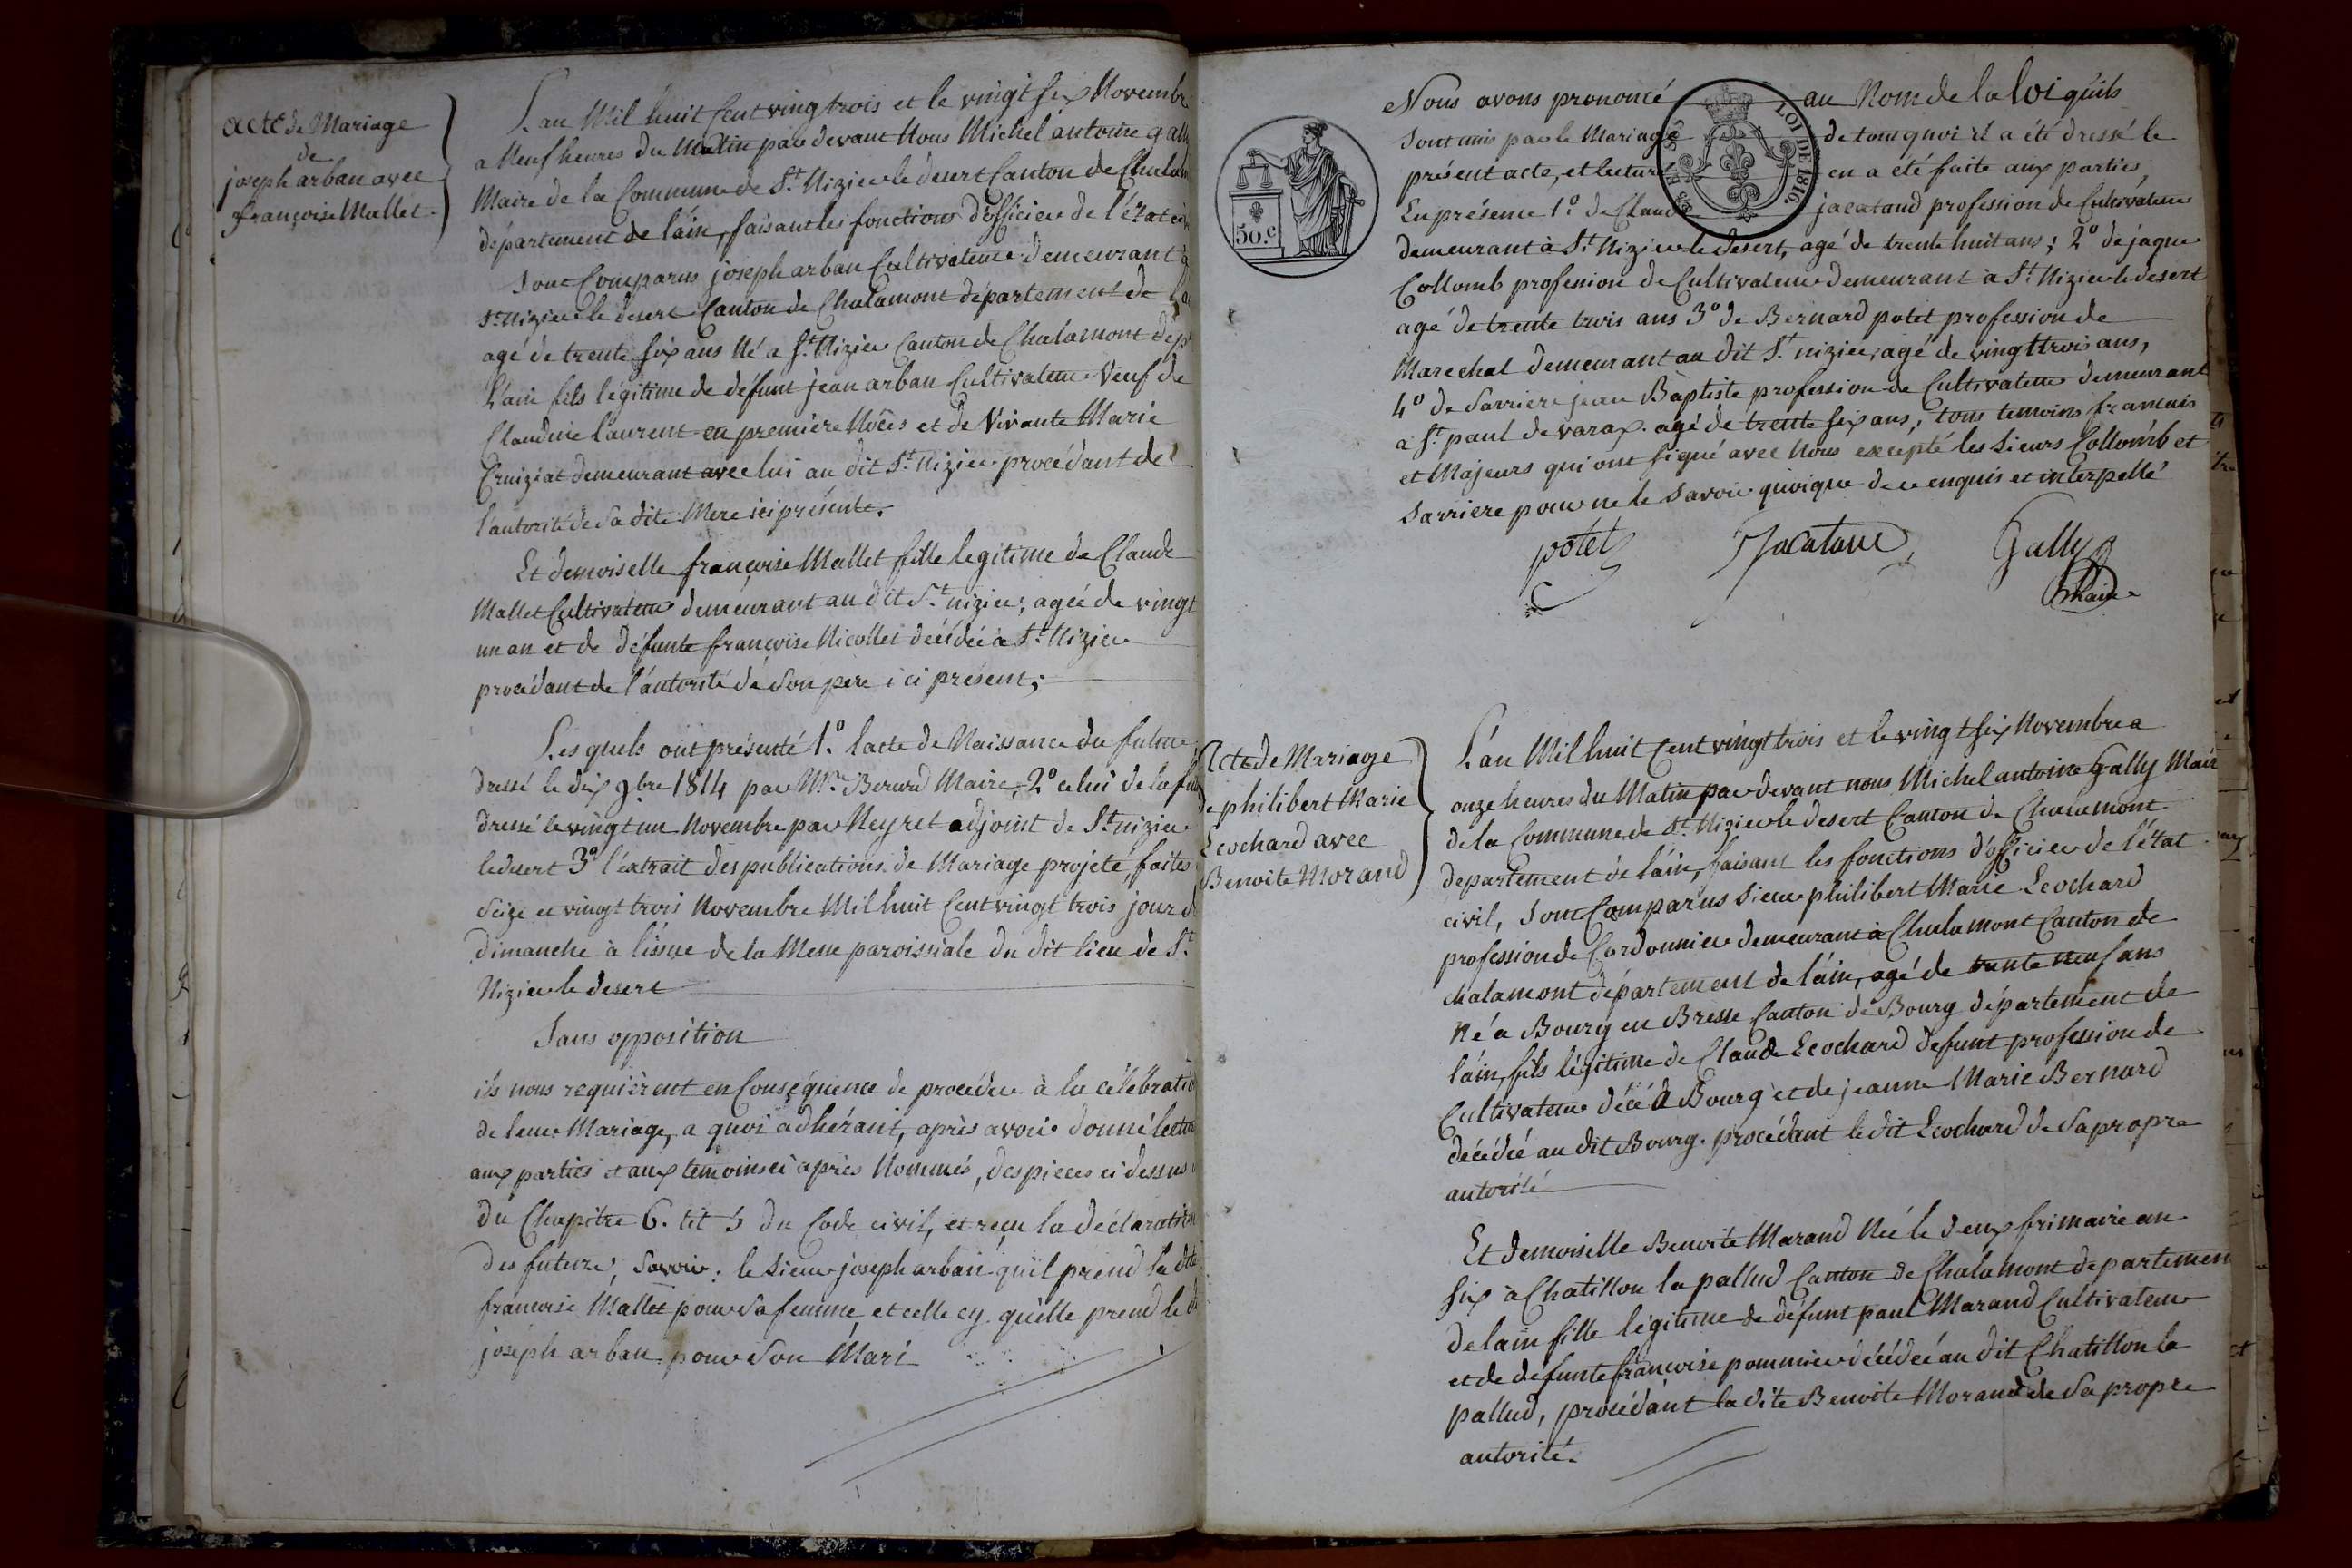 acte de Mariage
de
joseph arban avec
françoise Mallet.
L'an Mil huit Cent vingt trois et le vingt six Novembre
a Neuf heures du Matin par devant Nous Michel antoine
Maire de la Commune de St. Nizier le desert Canton de
département de l'ain, faisant les fonctions d'officier de l'état
Sont Comparus joseph arban Cultivateur demeurant à
St. Nizier le desert Canton de Chalamont département de
agé de trente six ans Né a St. Nizier Canton de Chalamont dépt
L'ain fils légitime de défunt jean arban Cultivateur Veuf de
Claudine Laurent en première Nôces et de Vivante Marie
Cruiziat demeurant avec lui au dit St. Nizier procédant de
l'autorité de Sa dite Mere ici présente.
Et demoiselle françoise Mallet fille legitime de Claude
Mallet Cultivateur demeurant au dit St. nizier, agée de vingt
un an et de défunte françoise Nicollet décédée à St. Nizier
procédant de l'autorité de Son père ici présent;
Les quels ont présenté 1.° lacte de Naissance du futur
dressé le dix 9bre 1814 par Mr. Berard Maire, 2° celui de la
dressé le vingt un Novembre par Neyret adjoint de St. nizier
le desert 3° l'extrait des publications de Mariage projeté, faites
Seize et vingt trois Novembre Mil huit Cent vingt trois jour
dimanche à l'issue de la Messe paroissiale du dit lieu de St.
Nizier le desert
Sans opposition
ils nous requièrent en Conséquence de procéder à la célébration
de leur Mariage, a quoi adhérant, après avoir donné lecture
aux parties et aux temoins ci après Nommés, des pieces ci dessus
du Chapitre 6. tit 5 du Code civil, et reçu la déclaration
des futurs, Savoir: le Sieur joseph arban qu'il prend la dite
françoise Mallet pour Sa femme, et celle cy qu'elle prend le
joseph arban pour Son Mari
50.c
LOI DE 1816.
Nous avons prononcé au Nom de la loi quils
Sont unis par le Mariage de tout quoi il a été dressé le
présent acte, et lecture en a été faite aux parties,
En présence 1.° de Claude jacataud profession de Cultivateur
demeurant à St. Nizier le desert, agé de trente huit ans; 2° de jaque
Collomb profession de Cultivateur demeurant à St. Nizier le desert
agé de trente trois ans 3° de Bernard potet profession de
Marechal demeurant au dit St. nizier, agé de vingt trois ans,
4° de Sarriere jean Baptiste profession de Cultivateur demeurant
à St. paul de varax. agé de trente six ans, tous temoins francais
et Majeurs qui ont signé avec Nous excepté les Sieurs Collomb et
Sarriere pour ne le Savoir quoique de ce enquis et interpellé
potet Jacataud Gally
Maire
Acte de Mariage
de philibert Marie
Ecochard avec
Benoite Morand
L'an Mil huit Cent vingt trois et le vingt six Novembre a
onze heures du Matin par devant nous Michel antoine Gally Maire
de la Commune de St. Nizier le desert Canton de Chalamont
departement de l'ain, faisant les fonctions d'officier de l'état
civil, Sont Comparus Sieur philibert Marie Ecochard
profession de Cordonnier demeurant à Chalamont Canton de
chalamont département de l'ain, agé de trente neuf ans
Né a Bourg en Bresse Canton de Bourg département de
l'ain, fils légitime de Claude Ecochard defunt profession de
Cultivateur décédé à Bourg et de jeanne Marie Bernard
décédée au dit Bourg. procédant le dit Ecochard de Sa propre
autorité
Et demoiselle Benoite Marand Née le deux frimaire an
six à Chatillon la pallud Canton de Chalamont departement
de l'ain fille légitime de défunt paul Marand Cultivateur
et de défunte françoise pommier décédée au dit Chatillon la
pallud, procédant la dite Benoite Morand de Sa propre
autorité.